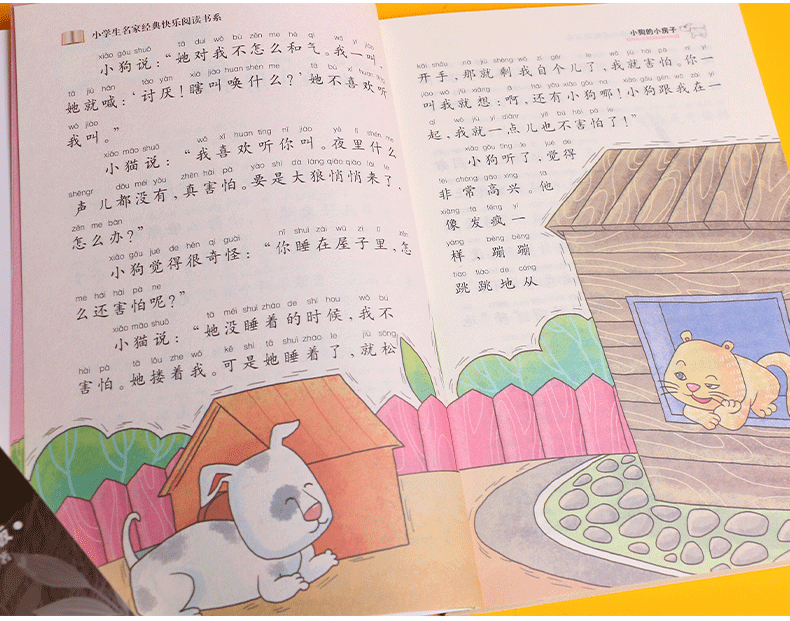 小学生名家经典快乐阅读书系
xiǎo gǒu shuō tā duì wǒ bù zěn me hé qì wǒ yí jiào
小狗说：“她对我不怎么和气。我一叫，
tā jiù hǎn tǎo yàn xiā jiào huan shén me tā bù xǐ huan tīng
她就喊：‘讨厌！瞎叫唤什么？’她不喜欢听
wǒ jiào
我叫。”
xiǎo māo shuō wǒ xǐ huan tīng nǐ jiào yè li shén me
小猫说：“我喜欢听你叫。夜里什么
shēngr dōu méi yǒu zhēn hài pà yào shi dà láng qiāo qiāo lái le
声儿都没有，真害怕。要是大狼悄悄来了，
zěn me bàn
怎么办？”
xiǎo gǒu jué de hěn qí guài nǐ shuì zài wū zi li zěn
小狗觉得很奇怪：“你睡在屋子里，怎
me hái hài pà ne
么还害怕呢？”
xiǎo māo shuō tā méi shuì zháo de shí hou wǒ bú
小猫说：“她没睡着的时候，我不
hài pà tā lǒu zhe wǒ kě shì tā shuì zháo le jiù sōng
害怕。她搂着我。可是她睡着了，就松
小狗的小房子
开手，那就剩我自个儿了，我就害怕。你一
叫我就想：啊，还有小狗哪！小狗跟我在一
起，我就一点儿也不害怕了！”
xiǎo gǒu tīng le jué de
小狗听了，觉得
fēi cháng gāo xìng tā
非常高兴。他
xiàng fā fēng yí
像发疯一
yàng bèng bèng
样、蹦蹦
tiào tiào de cóng
跳跳地从
版